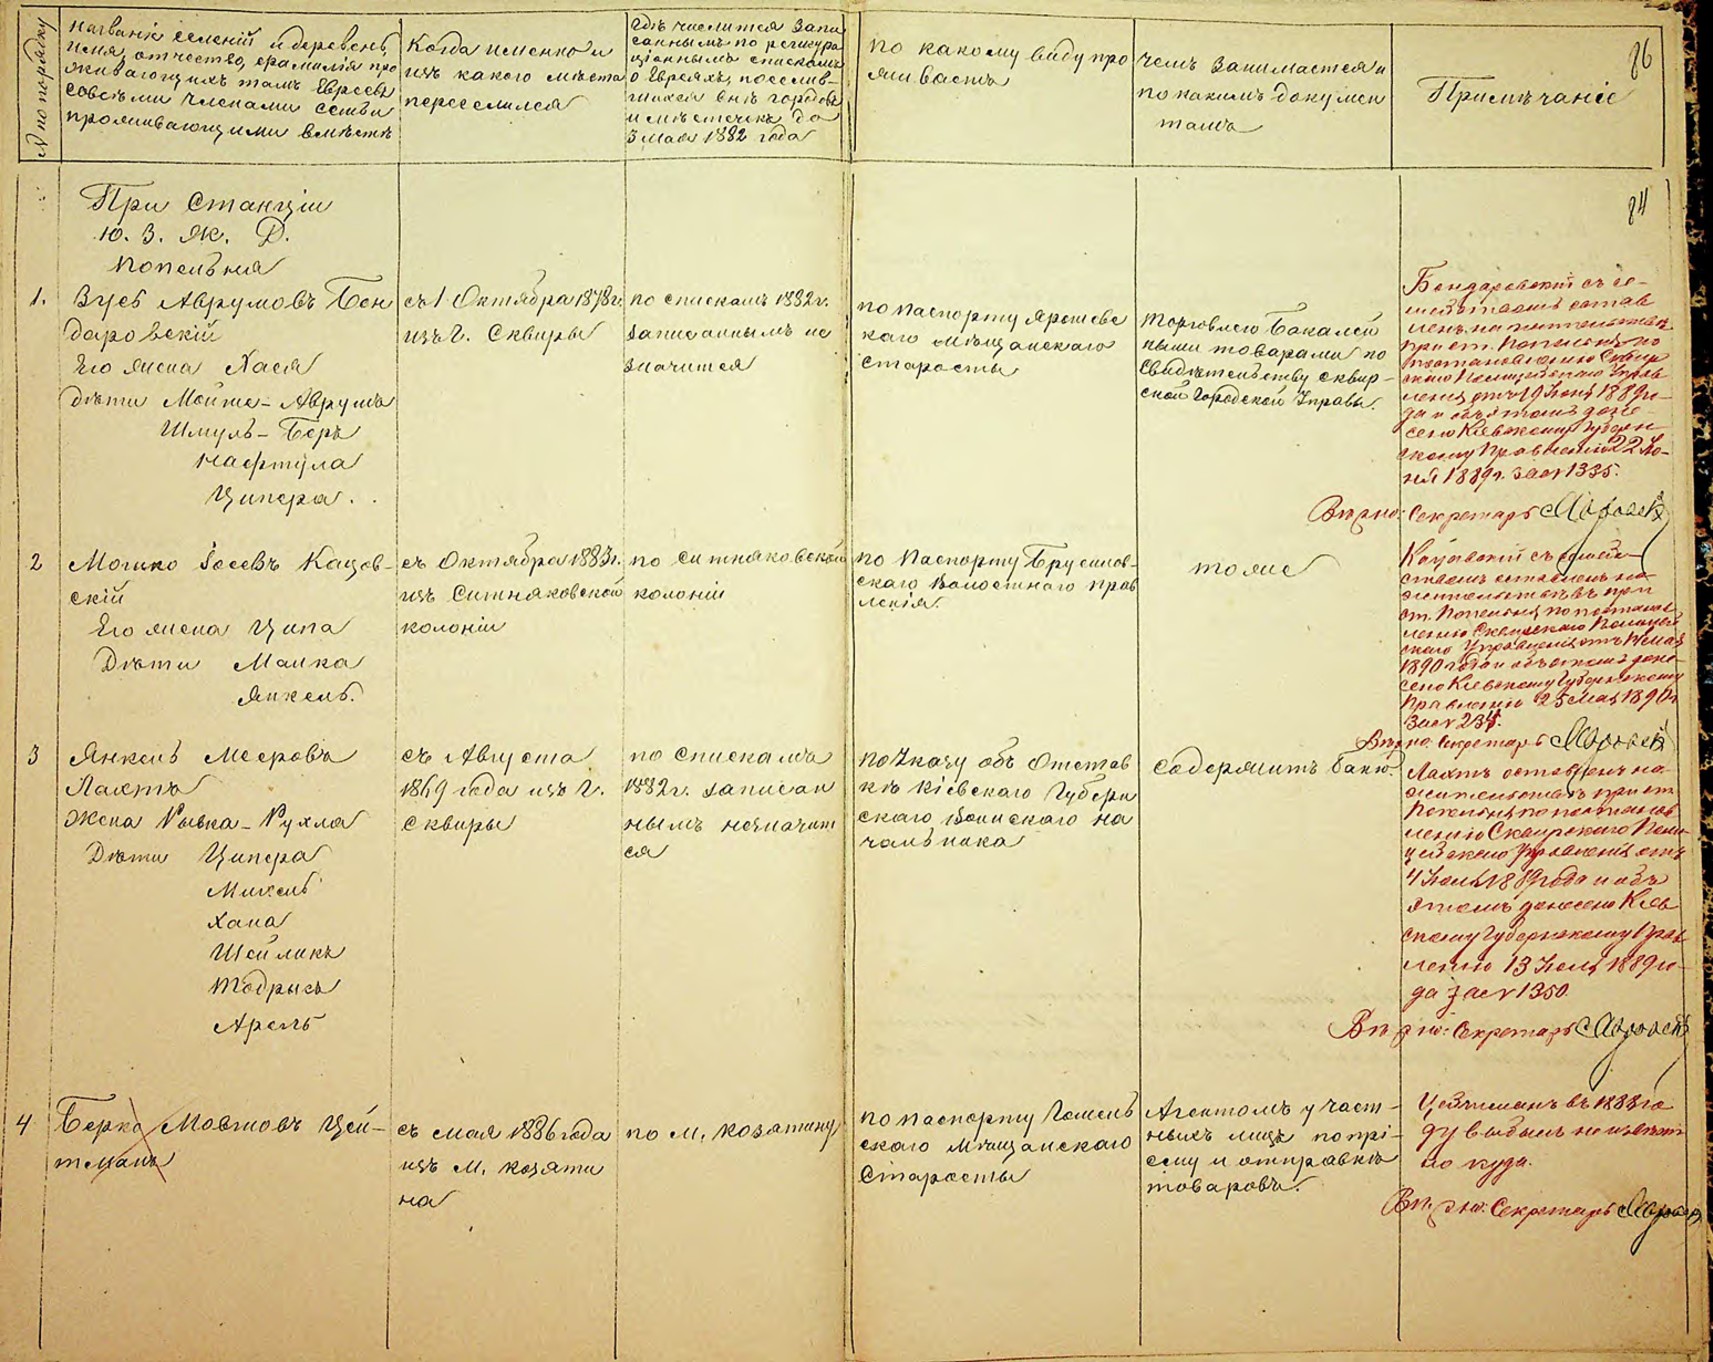 № по порядку
Названіе селеній и деревень,
имя, отчество, фамилія про
живающихъ тамъ Евреевъ
совсѣми членами семьи
проживающими вмѣстѣ
Когда именно и
изъ какого мѣста
переселился
Гдѣ числится запи
саннымъ по регистра
ціоннымъ спискамъ
о Евреяхъ, поселив-
шихся внѣ городовъ
и мѣстечекъ до
3 Мая 1882 года
По какому виду про
живаетъ
Чемъ занимается и
по какимъ докумен
тамъ
Примѣчаніе
86
84
При Станціи
Ю. З. Ж. Д.
Попельня
1.
Зусь Аврумовъ Бон
даровскій
Его жена Хася
дѣти Мойше-Аврумъ
Шмуль-Беръ
Нафтула
Ципера.
съ 1 Октября 1878 г.
изъ г. Сквиры
по спискамъ 1882 г.
записаннымъ не
значится
по паспорту Ярошевс
каго Мѣщанскаго
Старосты
Торговлею Бакалей
ными товарами по
Свидѣтельству Сквир-
ской Городской Управы.
Бондаровскій съ се-
мействомъ остав
ленъ на жительствѣ
при ст. Попельня по
постановленію Сквир
скаго Полицейскаго Управ
ленія отъ 19 Іюня 1889 го-
да и объ этомъ доне-
сено Кіевскому Губерн-
скому Правленію 22 Ію-
ня 1889 г. за № 1335.
Вѣрно: Секретарь
2
Мошко Іосевъ Кацов-
скій
Его жена Ципа
Дѣти Малка
Янкель.
съ Октября 1883 г.
изъ Ситняковской
колоніи
по Ситняковской
колоніи
по Паспорту Брусилов-
скаго Волостнаго Прав
ленія.
тоже
Кацовскій съ семей-
ствомъ оставленъ на
жительствѣ при
ст. Попельня по постанов
ленію Сквирскаго Полицей
скаго Управленія отъ Мая
1890 года и объ этомъ доне-
сено Кіевскому Губернскому
Правленію 25 Мая 1890 г.
за № 234.
Вѣрно: Секретарь
3
Янкель Мееровъ
Лахтъ
Жена Рывка-Рухля
Дѣти Ципера
Михель
Хана
Шейликъ
Тодрысъ
Арель
съ Августа
1869 года изъ г.
Сквиры
по спискамъ
1882 г. записан
нымъ незначит
ся
по Указу объ Отстав
кѣ Кіевскаго Губерн
скаго Воинскаго На
чальника
содержитъ баню.
Лахтъ оставленъ на
жительствѣ при ст.
Попельня по постанов
ленію Сквирскаго Поли
цейскаго Управленія отъ
4 Іюля 1889 года и объ
этомъ донесено Кіев
скому Губернскому Прав
ленію 13 Іюля 1889 го-
да за № 1350.
Вѣрно: Секретарь
4
Берко Мовшовъ Цей-
тманъ
съ мая 1886 года
изъ м. Козяти
на
по м. Козятину
по паспорту Гомель
скаго Мѣщанскаго
Старосты
Агентомъ у част-
ныхъ лицъ по прі-
ему и отправкѣ
товаровъ.
Цейтманъ въ 1888 го
ду выбылъ неизвѣст
но куда.
Вѣрно: Секретарь